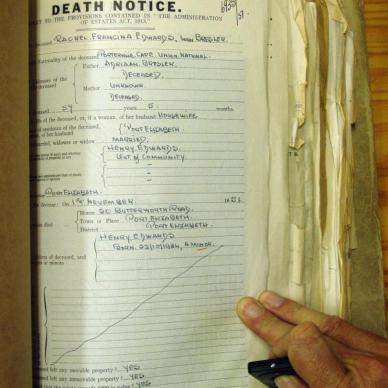 DEATH NOTICE.
TO THE PROVISIONS CONTAINED IN "THE ADMINISTRATION
OF ESTATES ACT, 1913"
deceased RACHEL FRANCINA EDWARDS, born BREDLER
nationality of the deceased PORTERVILLE, CAPE. UNION NATIONAL.
addresses of the
deceased
Father ADRIAAN BREDLER
DECEASED.
Mother UNKNOWN.
DECEASED.
deceased 54 years 5 months
of the deceased, or, if a woman, of her husband HOUSEWIFE.
residence of the deceased,
of her husband
PORT ELIZABETH.
married, widower or widow MARRIED.
HENRY EDWARDS
OUT OF COMMUNITY.
PORT ELIZABETH.
decease: On 1ST NOVEMBER 195
died
House 20 BUTTERWORTH ROAD.
Town or Place PORT ELIZABETH.
District PORT ELIZABETH.
HENRY EDWARDS
BORN. 22/10/1934, A MINOR.
children of deceased, and
or minors
deceased left any movable property? YES
deceased left any immovable property? YES
YES